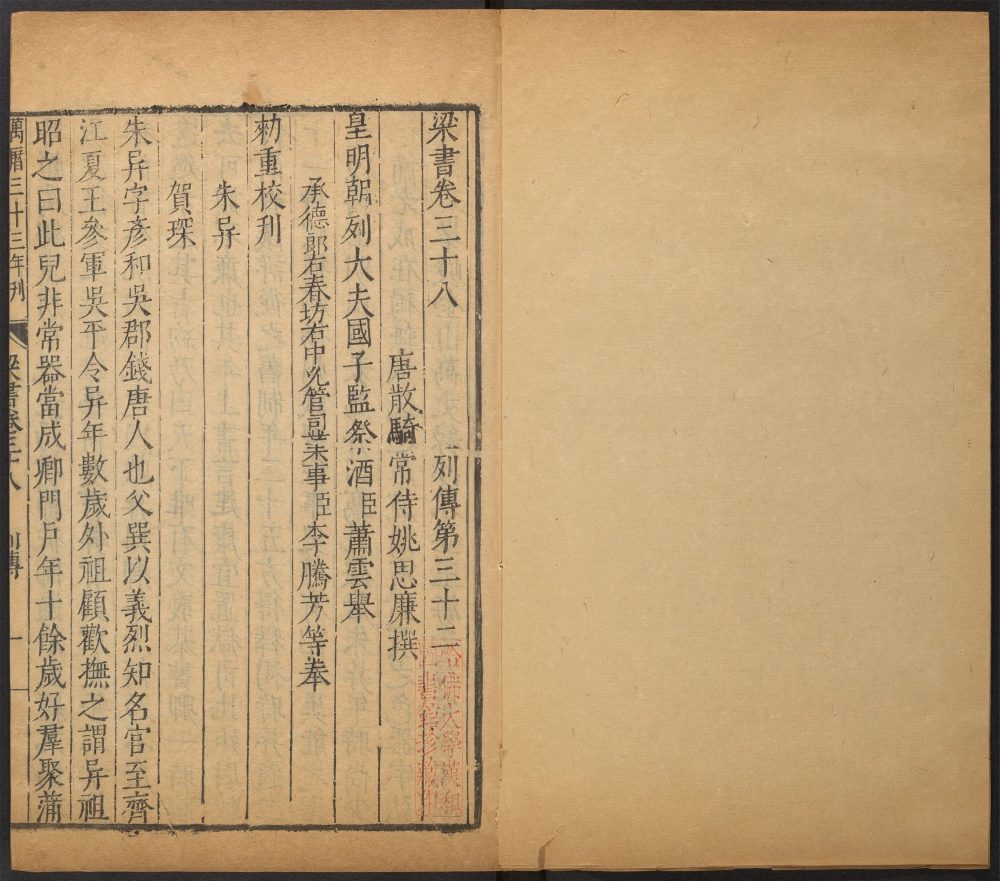 梁書卷三十八　列傳第三十二
唐散騎常侍姚思廉撰
皇明朝列大夫國子監祭酒臣蕭雲舉
承德郎右春坊右中允管司業事臣李騰芳等奉
勑重校刋
朱异
賀琛
朱异字彥和吳郡錢唐人也父巽以義烈知名官至齊
江夏王參軍吳平令异年數歲外祖顧歡撫之謂异祖
昭之曰此兒非常器當成卿門戶年十餘歲好羣聚蒲
萬曆三十三年刊　梁書卷三十八　列傳　一
哈佛大學漢和
圖書館珍藏印